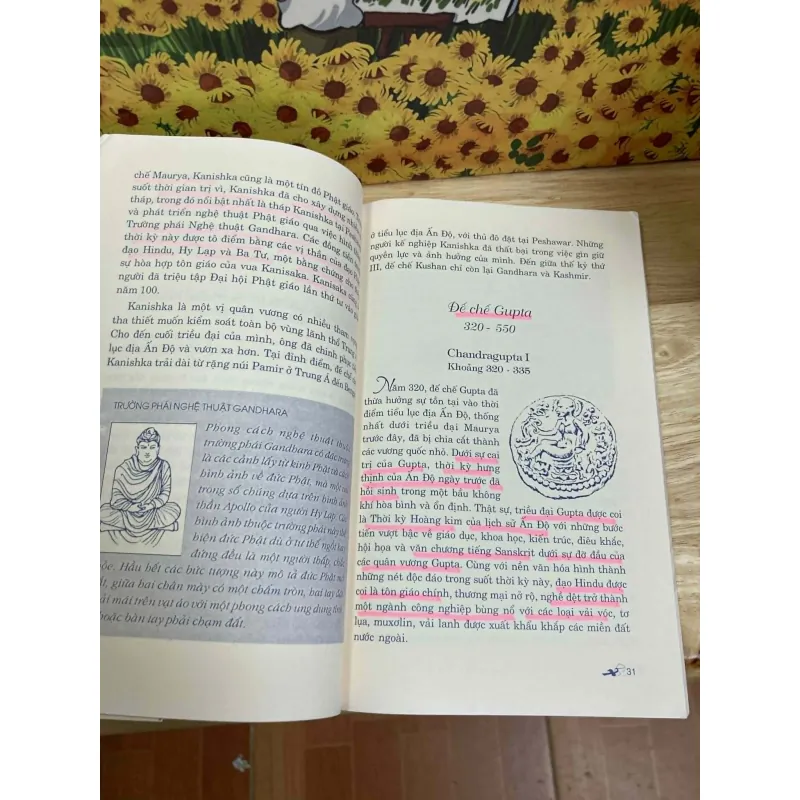 chế Maurya, Kanishka cũng là một tín đồ Phật giáo
suốt thời gian trị vì, Kanishka đã cho xây dựng
tháp, trong đó nổi bật nhất là tháp Kanishka tại
và phát triển nghệ thuật Phật giáo qua việc hình
Trường phái Nghệ thuật Gandhara. Các đồng tiền
thời kỳ này được tô điểm bằng các vị thần của đạo
đạo Hindu, Hy Lạp và Ba Tư, một bằng chứng cho
sự hòa hợp tôn giáo của vua Kanisaka. Kanisaka cũng
người đã triệu tập Đại hội Phật giáo lần thứ tư vào
năm 100.
Kanishka là một vị quân vương có nhiều tham
tha thiết muốn kiểm soát toàn bộ vùng lãnh thổ Trung
Cho đến cuối triều đại của mình, ông đã chinh phục
lục địa Ấn Độ và vươn xa hơn. Tại đỉnh điểm, đế chế
Kanishka trải dài từ rặng núi Pamir ở Trung Á đến
TRƯỜNG PHÁI NGHỆ THUẬT GANDHARA
Phong cách nghệ thuật
trường phái Gandhara có đặc trưng
là các cảnh lấy từ kinh Phật và
hình ảnh về đức Phật, mà một
trong số chúng dựa trên hình ảnh
thần Apollo của người Hy Lạp. Các
hình ảnh thuộc trường phái này thể
hiện đức Phật dù ở tư thế ngồi hay
đứng đều là một người thấp, chắc
Hầu hết các bức tượng này mô tả đức Phật
giữa hai chân mày có một chấm tròn, hai tay
mái trên vạt áo với một phong cách ung dung
hoặc bàn tay phải chạm đất.
ở tiểu lục địa Ấn Độ, với thủ đô đặt tại Peshawar. Những
người kế nghiệp Kanishka đã thất bại trong việc gìn giữ
quyền lực và ảnh hưởng của mình. Đến giữa thế kỷ thứ
III, đế chế Kushan chỉ còn lại Gandhara và Kashmir.
Đế chế Gupta
320 - 550
Chandragupta I
Khoảng 320 - 335
Năm 320, đế chế Gupta đã
thừa hưởng sự tồn tại vào thời
điểm tiểu lục địa Ấn Độ, thống
nhất dưới triều đại Maurya
trước đây, đã bị chia cắt thành
các vương quốc nhỏ. Dưới sự cai
trị của Gupta, thời kỳ hưng
thịnh của Ấn Độ ngày trước đã
hồi sinh trong một bầu không
khí hòa bình và ổn định. Thật sự, triều đại Gupta được coi
là Thời kỳ Hoàng kim của lịch sử Ấn Độ với những bước
tiến vượt bậc về giáo dục, khoa học, kiến trúc, điêu khắc,
hội họa và văn chương tiếng Sanskrit dưới sự đỡ đầu của
các quân vương Gupta. Cùng với nền văn hóa hình thành
những nét độc đáo trong suốt thời kỳ này, đạo Hindu được
coi là tôn giáo chính, thương mại nở rộ, nghề dệt trở thành
một ngành công nghiệp bùng nổ với các loại vải vóc, tơ
lụa, muxơlin, vải lanh được xuất khẩu khắp các miền đất
nước ngoài.
31